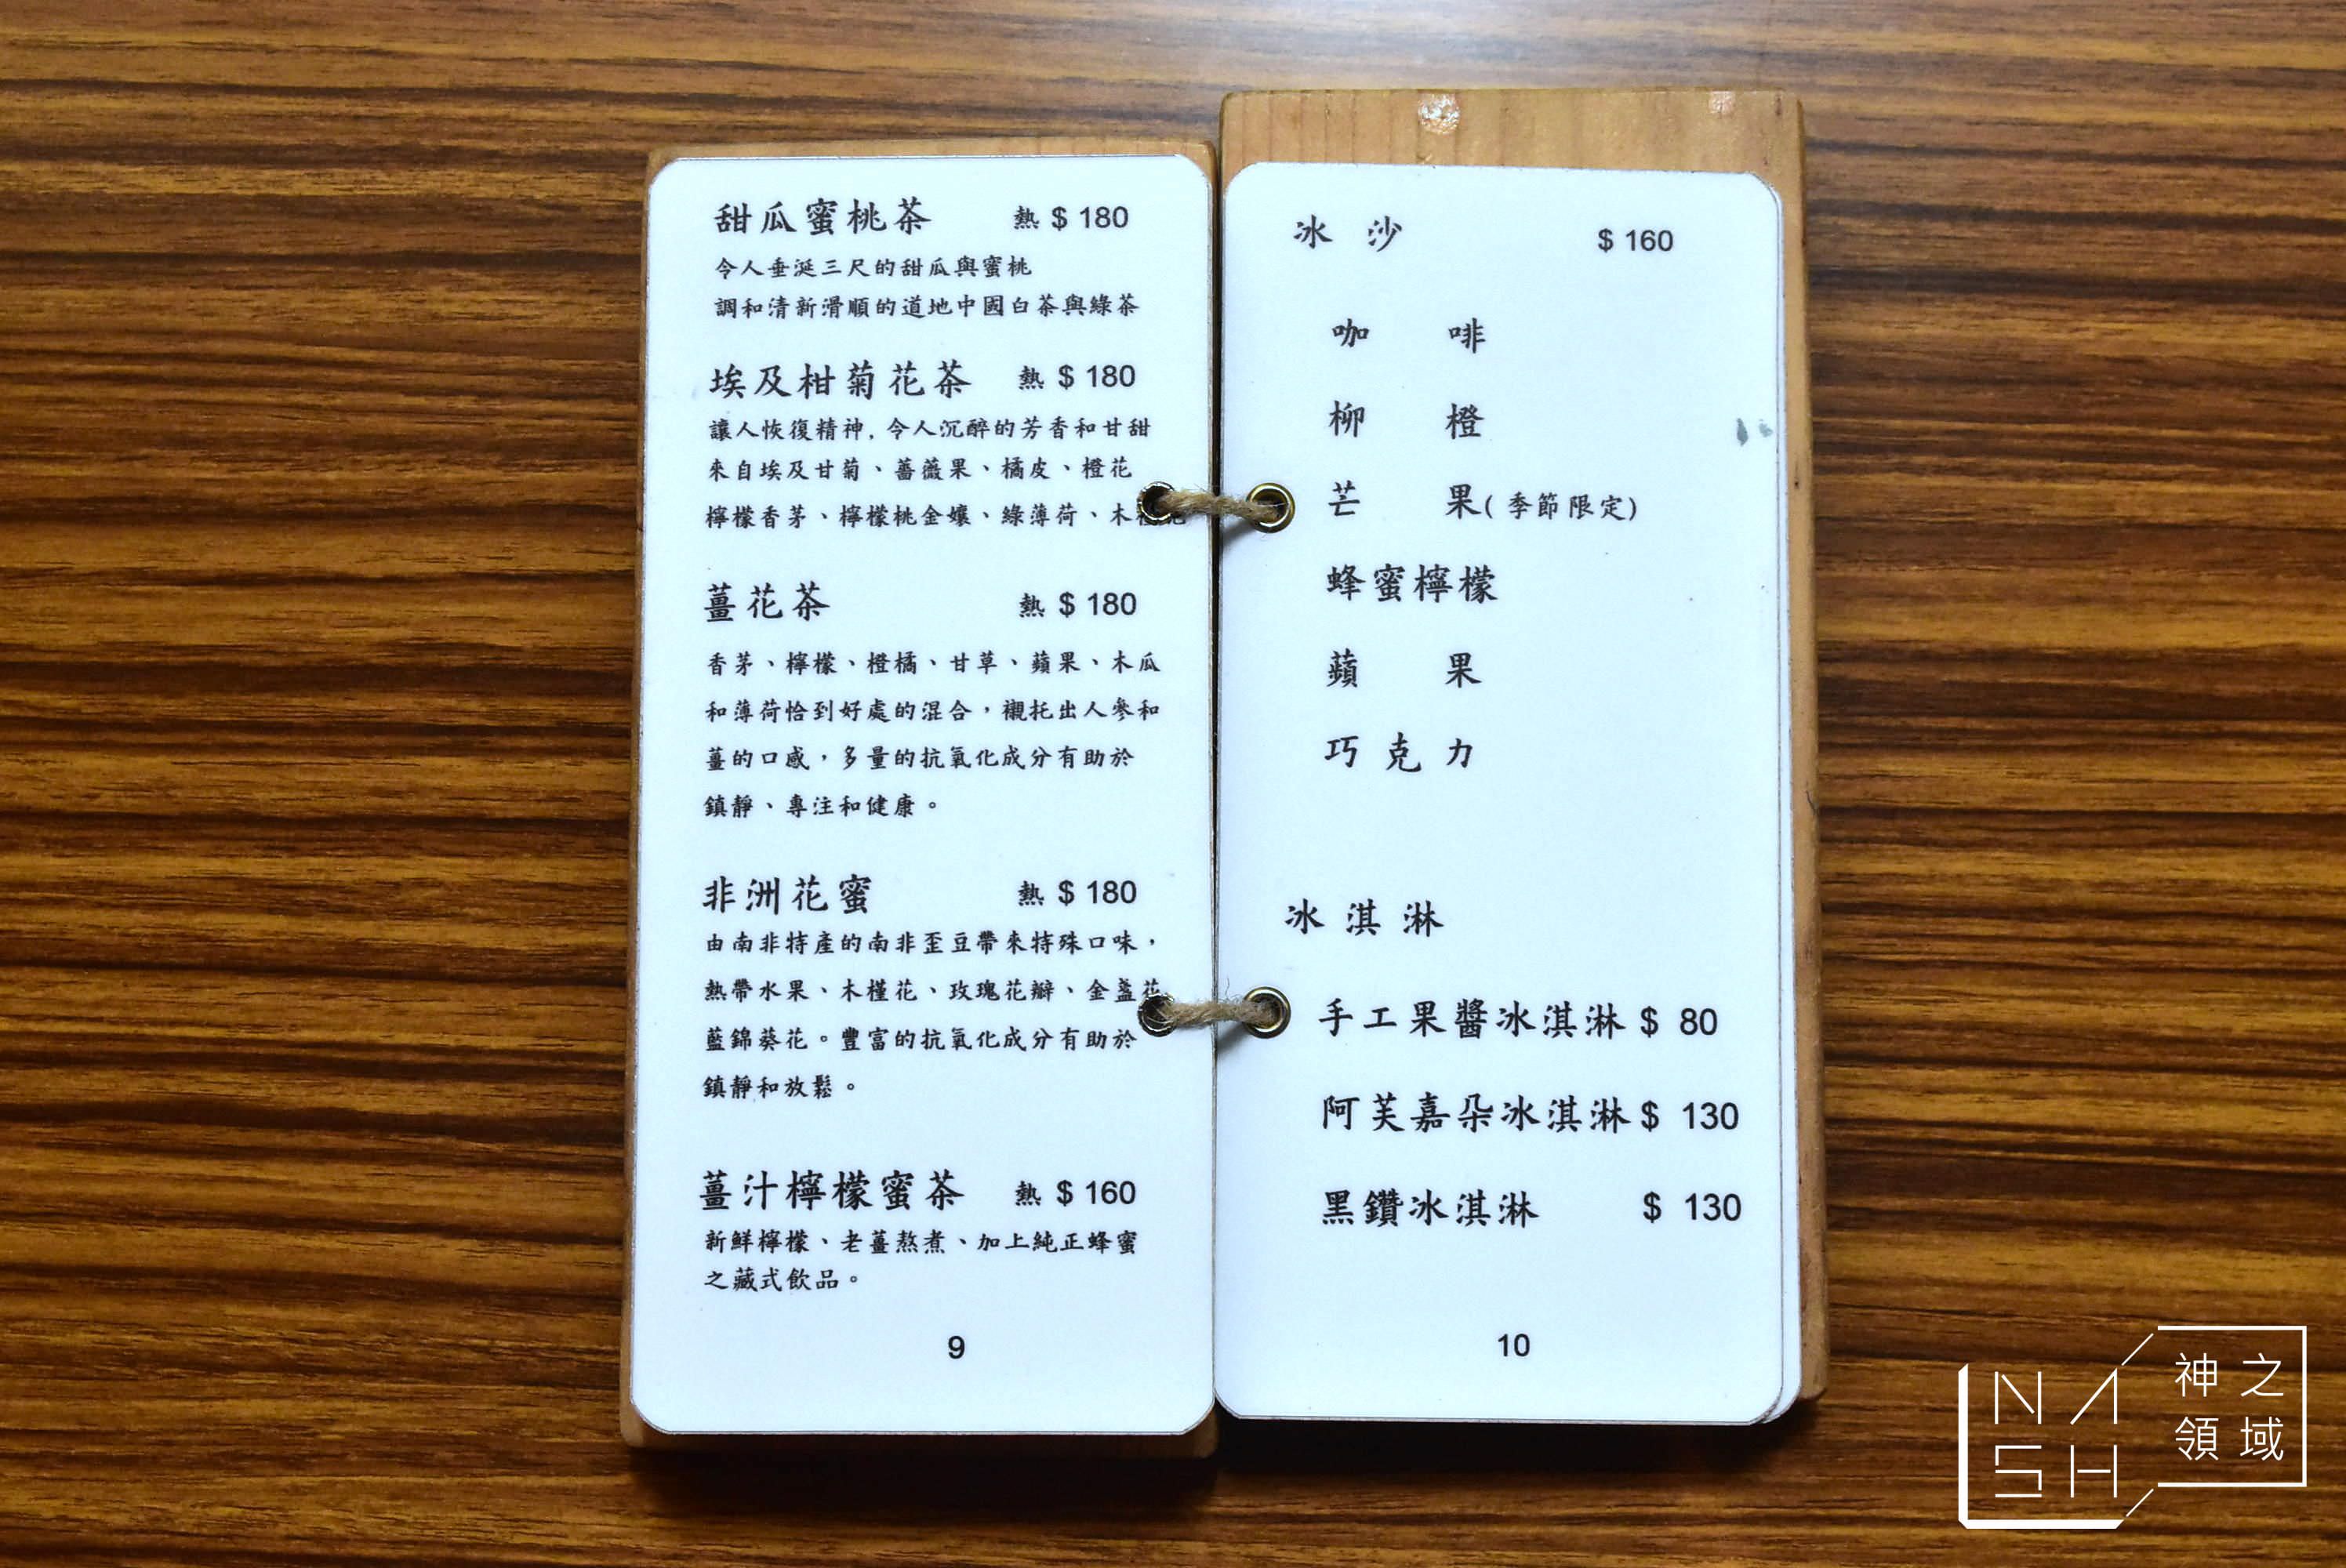 甜瓜蜜桃茶 熱 $ 180
令人垂涎三尺的甜瓜與蜜桃
調和清新滑順的道地中國白茶與綠茶
埃及柑菊花茶 熱 $ 180
讓人恢復精神, 令人沉醉的芳香和甘甜
來自埃及甘菊、薔薇果、橘皮、橙花
檸檬香茅、檸檬桃金孃、綠薄荷、木
薑花茶 熱 $ 180
香茅、檸檬、橙橘、甘草、蘋果、木瓜
和薄荷恰到好處的混合，襯托出人參和
薑的口感，多量的抗氧化成分有助於
鎮靜、專注和健康。
非洲花蜜 熱 $ 180
由南非特產的南非歪豆帶來特殊口味，
熱帶水果、木槿花、玫瑰花瓣、金盞花
藍錦葵花。豐富的抗氧化成分有助於
鎮靜和放鬆。
薑汁檸檬蜜茶 熱 $ 160
新鮮檸檬、老薑熬煮、加上純正蜂蜜
之藏式飲品。
9
冰沙 $ 160
咖啡
柳橙
芒果(季節限定)
蜂蜜檸檬
蘋果
巧克力
冰淇淋
手工果醬冰淇淋 $ 80
阿芙嘉朵冰淇淋 $ 130
黑鑽冰淇淋 $ 130
10
NASH
神之
領域